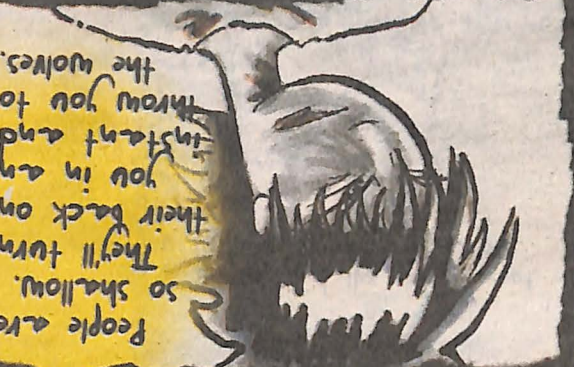 People are
so shallow.
They'll turn
their back on
you in an
instant and
throw you to
the wolves.